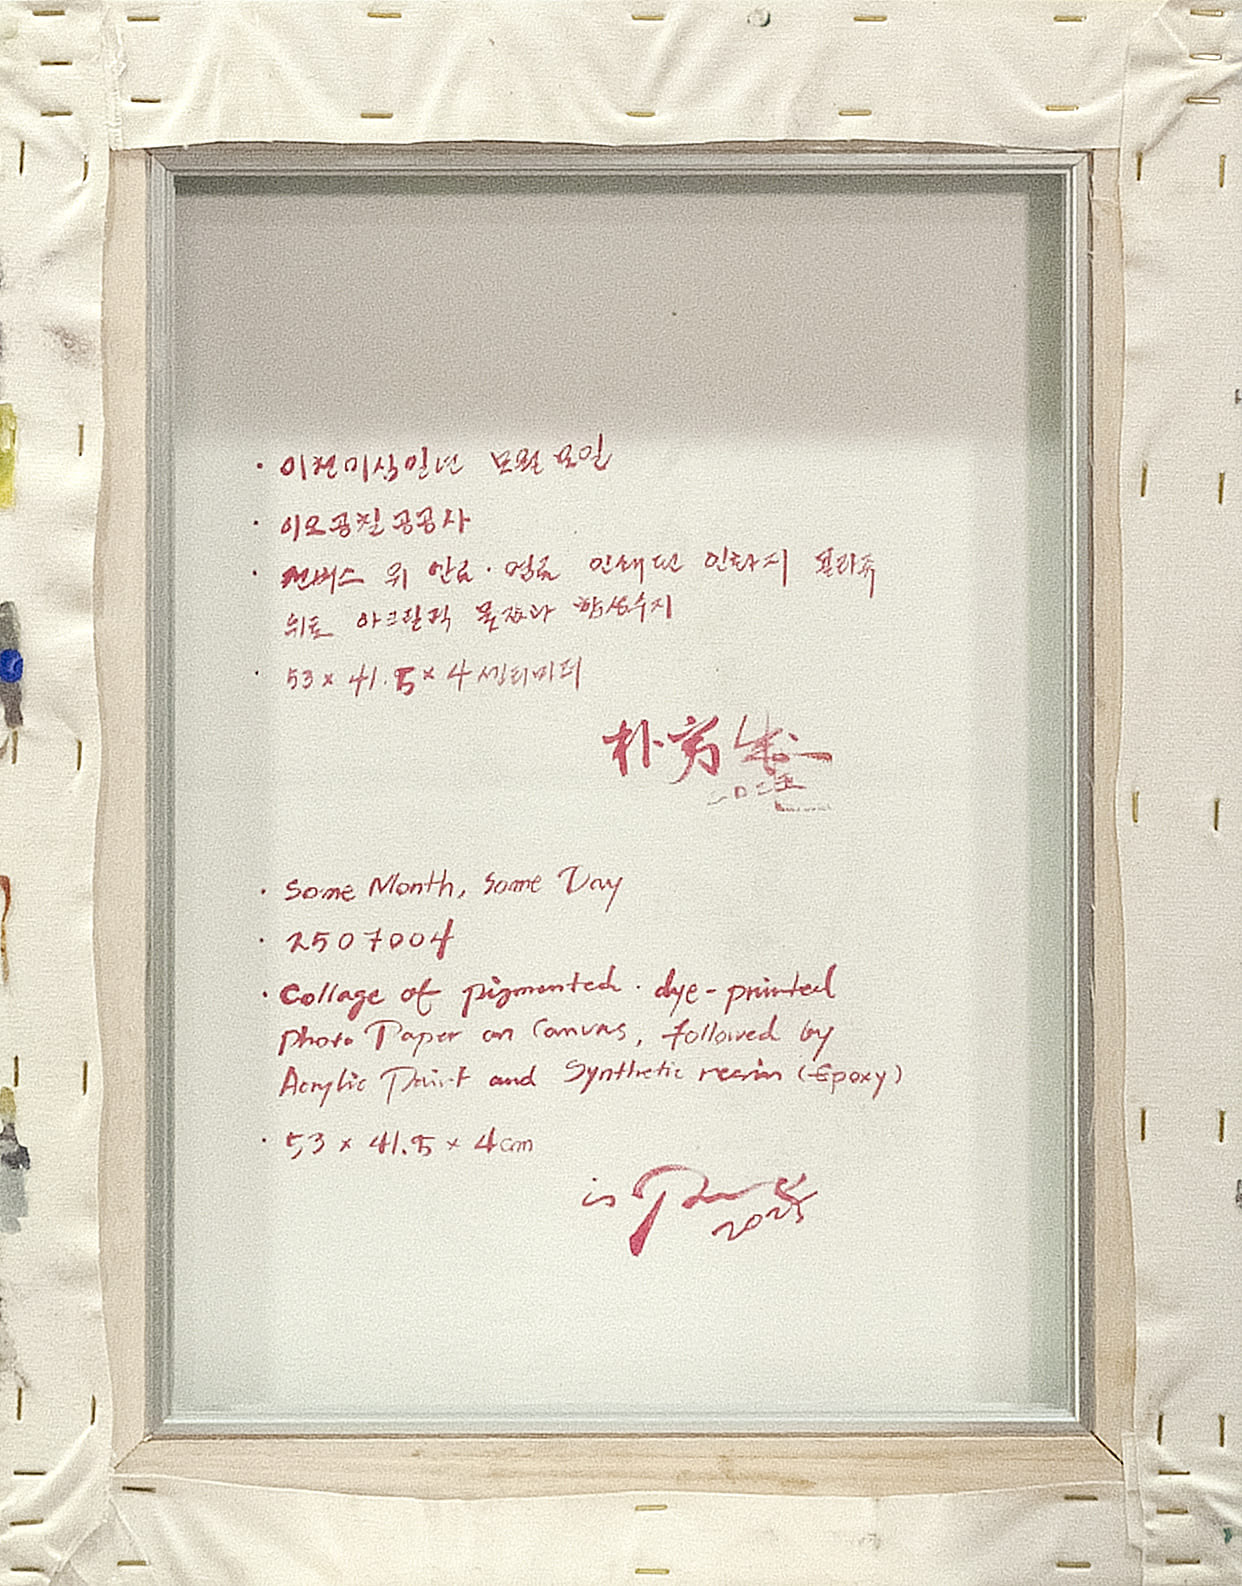 · 이천이십일년 모월 모일
· 이오공칠공공사
· 캔버스 위 안료 · 염료 인쇄된 인화지 콜라쥬
위로 아크릴릭 물감과 합성수지
· 53 × 41.5 × 4 센티미터
朴
· Some Month, Some Day
· 2507004
· Collage of pigmented · dye-printed
photo Paper on Canvas, followed by
Acrylic Paint and Synthetic resin (Epoxy)
· 53 × 41.5 × 4cm
is Park
2025